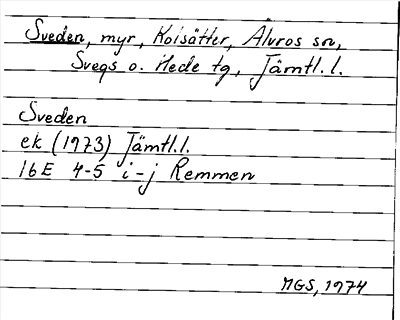 Sveden, myr, Kolsätter, Älvros sn,
Svegs o. Hede tg, Jämtl. l.
Sveden
ek (1973) Jämtl. l.
16E 4-5 i-j Remmen
MGS, 1974